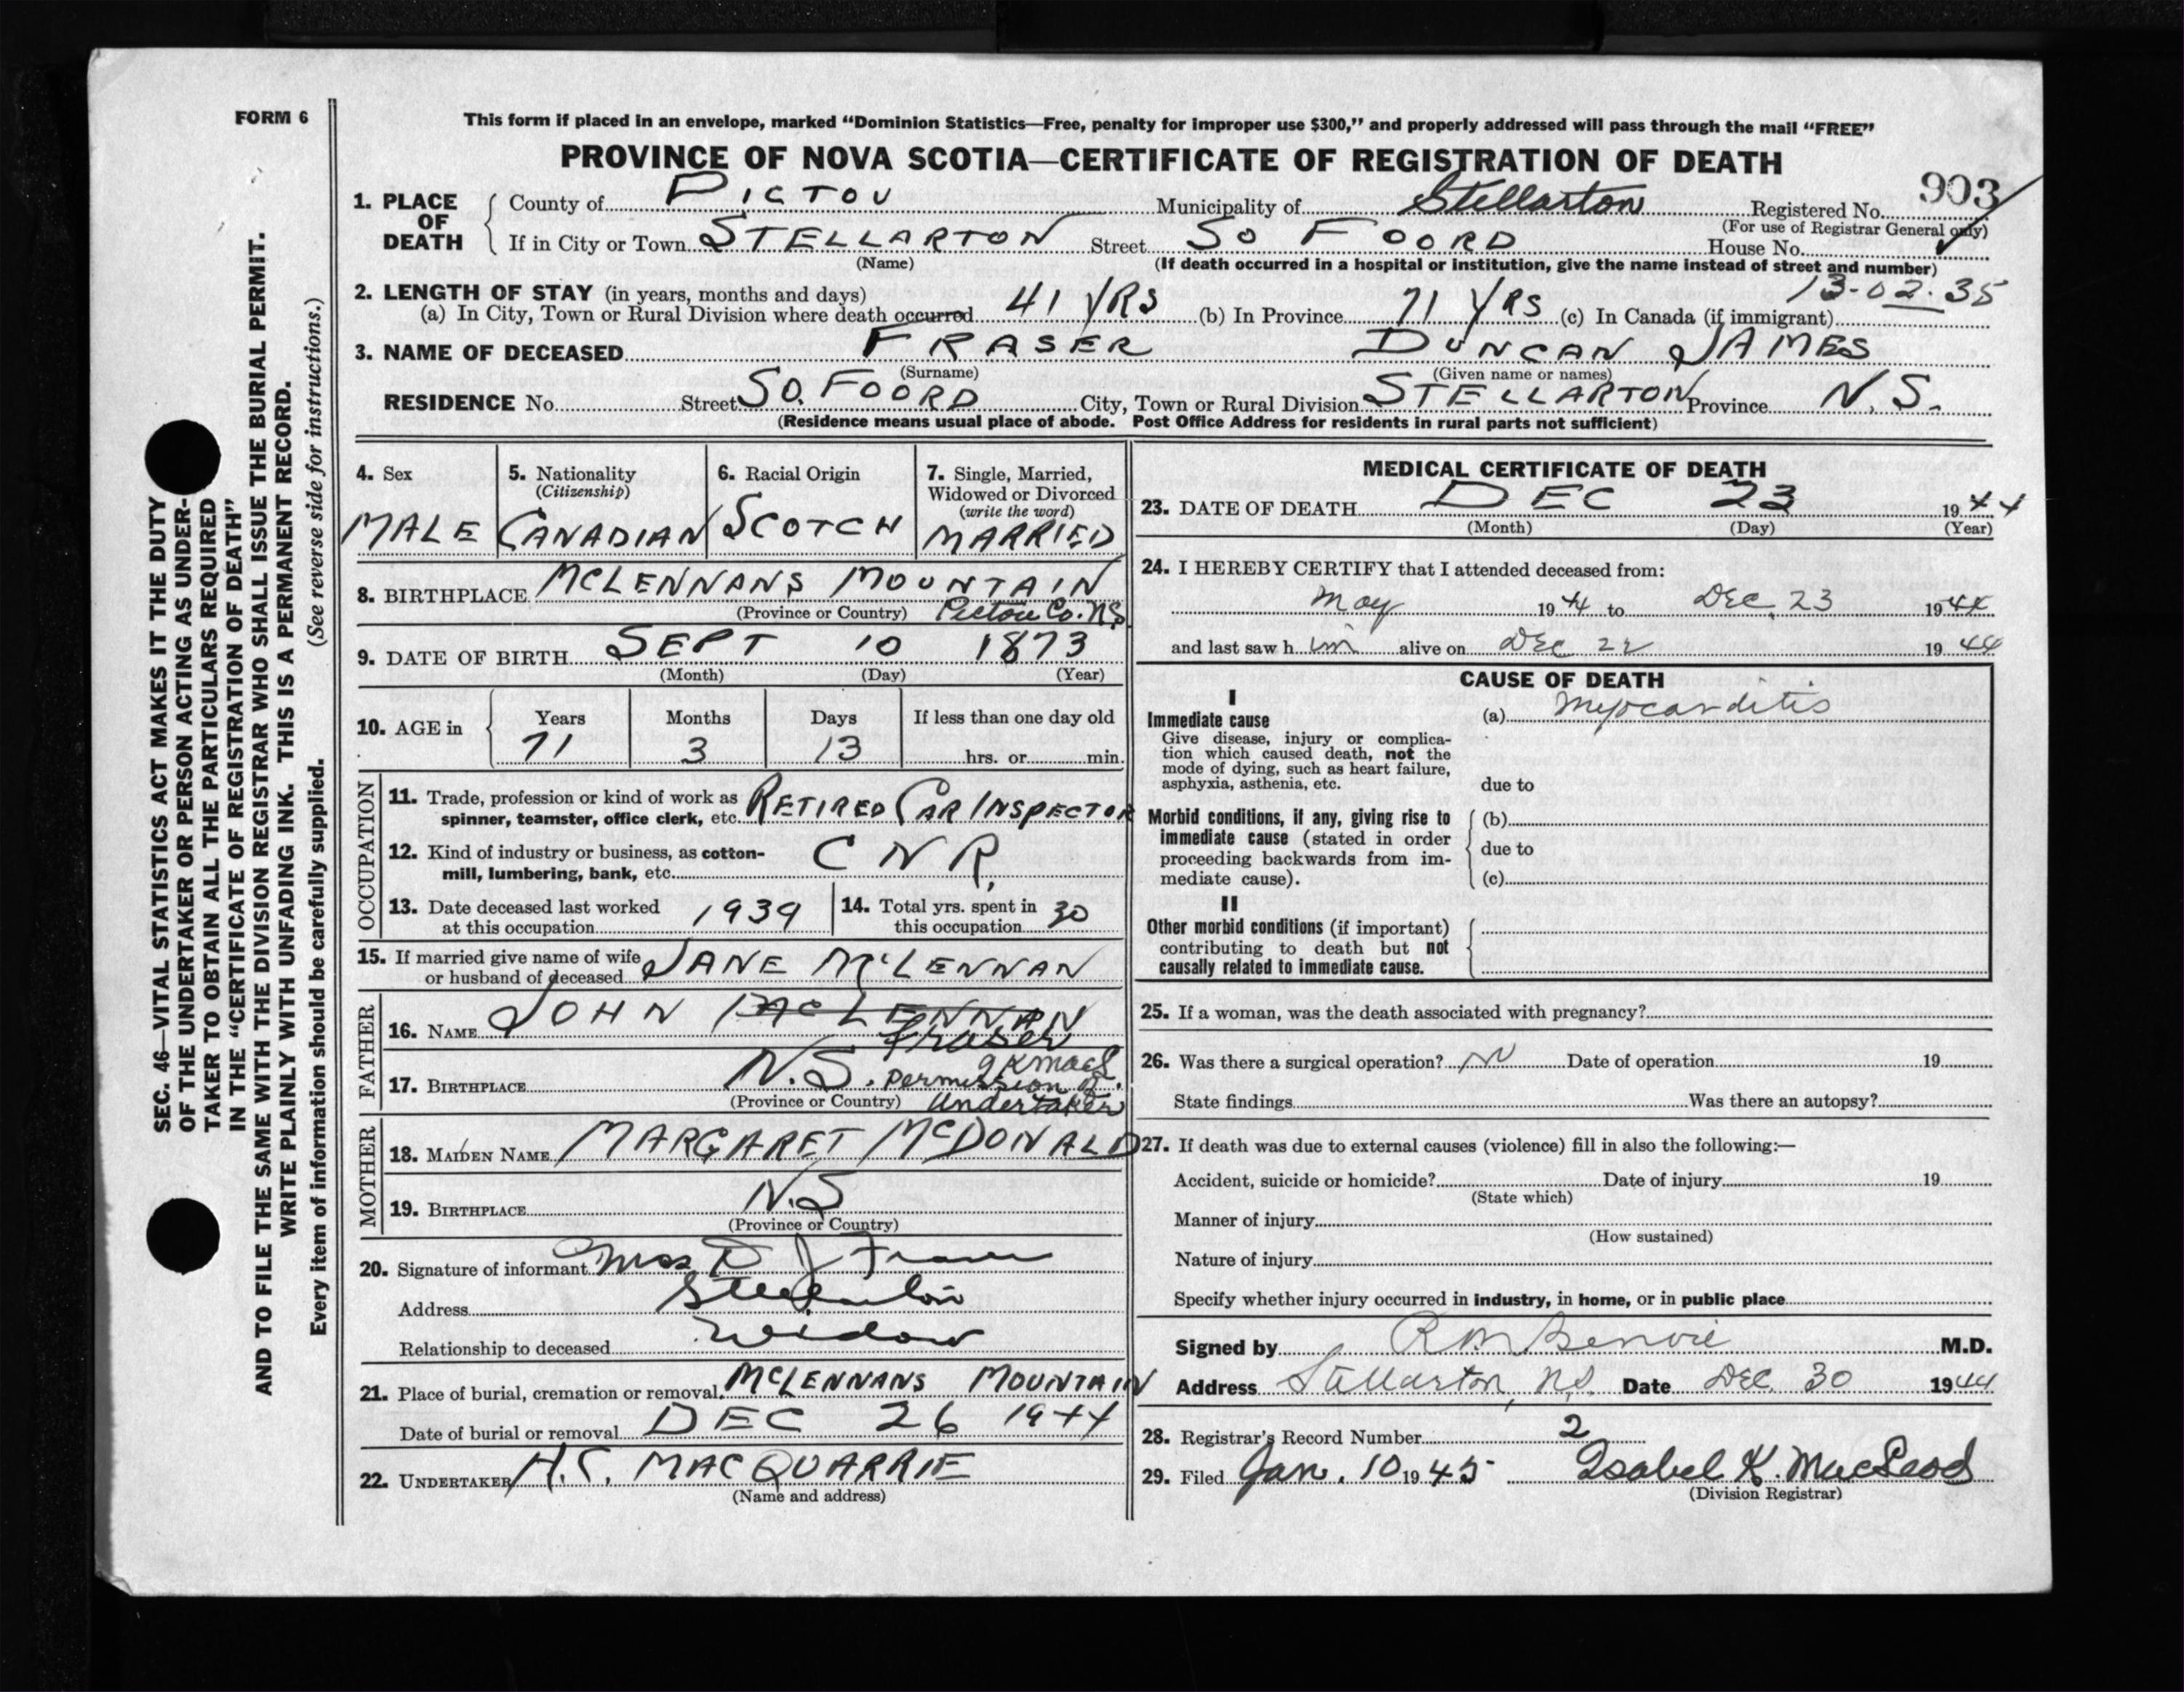 FORM 6
This form if placed in an envelope, marked “Dominion Statistics—Free, penalty for improper use $300,” and properly addressed will pass through the mail “FREE”
PROVINCE OF NOVA SCOTIA—CERTIFICATE OF REGISTRATION OF DEATH
903
1. PLACE OF DEATH County of PICTOU Municipality of Stellarton Registered No.
(For use of Registrar General only)
If in City or Town STELLARTON Street SO FOORD House No.
(Name) (If death occurred in a hospital or institution, give the name instead of street and number)
13-02-35
2. LENGTH OF STAY (in years, months and days)
(a) In City, Town or Rural Division where death occurred 41 YRS (b) In Province 71 YRS (c) In Canada (if immigrant)
3. NAME OF DECEASED FRASER DUNCAN JAMES
(Surname) (Given name or names)
RESIDENCE No. Street SO. FOORD City, Town or Rural Division STELLARTON Province N.S.
(Residence means usual place of abode. Post Office Address for residents in rural parts not sufficient)
4. Sex MALE
5. Nationality (Citizenship) CANADIAN
6. Racial Origin SCOTCH
7. Single, Married, Widowed or Divorced (write the word) MARRIED
8. BIRTHPLACE MCLENNANS MOUNTAIN
(Province or Country) Pictou Co. N.S.
9. DATE OF BIRTH SEPT 10 1873
(Month) (Day) (Year)
10. AGE in Years 71 Months 3 Days 13 If less than one day old hrs. or min.
OCCUPATION
11. Trade, profession or kind of work as spinner, teamster, office clerk, etc. RETIRED CAR INSPECTOR
12. Kind of industry or business, as cotton-mill, lumbering, bank, etc. C N R.
13. Date deceased last worked at this occupation 1939
14. Total yrs. spent in this occupation 30
15. If married give name of wife or husband of deceased JANE MCLENNAN
FATHER
16. NAME JOHN MCLENNAN
Fraser
17. BIRTHPLACE N.S. permission of Undertaker
(Province or Country)
MOTHER
18. MAIDEN NAME MARGARET MCDONALD
19. BIRTHPLACE N.S
(Province or Country)
20. Signature of informant Mrs D J Fraser
Address Stellarton
Relationship to deceased Widow
21. Place of burial, cremation or removal MCLENNANS MOUNTAIN
Date of burial or removal DEC 26 1944
22. UNDERTAKER MACQUARRIE
(Name and address)
MEDICAL CERTIFICATE OF DEATH
23. DATE OF DEATH DEC 23 1944
(Month) (Day) (Year)
24. I HEREBY CERTIFY that I attended deceased from:
May 1944 to DEC 23 1944
and last saw him alive on DEC 22 1944
CAUSE OF DEATH
I
Immediate cause
Give disease, injury or complication which caused death, not the mode of dying, such as heart failure, asphyxia, asthenia, etc.
(a) Myocarditis
due to
Morbid conditions, if any, giving rise to immediate cause (stated in order proceeding backwards from immediate cause).
(b)
due to
(c)
II
Other morbid conditions (if important) contributing to death but not causally related to immediate cause.
25. If a woman, was the death associated with pregnancy?
26. Was there a surgical operation? No Date of operation 19
State findings Was there an autopsy?
27. If death was due to external causes (violence) fill in also the following:—
Accident, suicide or homicide? Date of injury 19
(State which)
Manner of injury
(How sustained)
Nature of injury
Specify whether injury occurred in industry, in home, or in public place
Signed by R M Benvie M.D.
Address Stellarton, N.S. Date DEC. 30 1944
28. Registrar's Record Number 2
29. Filed Jan. 10 1945 Isabel K. MacLeod
(Division Registrar)
SEC. 46—VITAL STATISTICS ACT MAKES IT THE DUTY
OF THE UNDERTAKER OR PERSON ACTING AS UNDER-
TAKER TO OBTAIN ALL THE PARTICULARS REQUIRED
IN THE “CERTIFICATE OF REGISTRATION OF DEATH”
AND TO FILE THE SAME WITH THE DIVISION REGISTRAR WHO SHALL ISSUE THE BURIAL PERMIT.
WRITE PLAINLY WITH UNFADING INK. THIS IS A PERMANENT RECORD.
Every item of information should be carefully supplied. (See reverse side for instructions.)